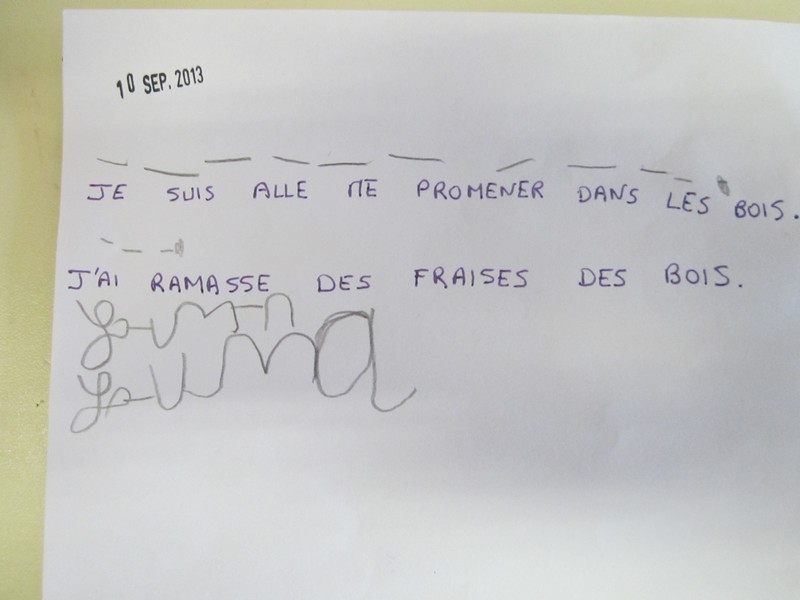 10 SEP. 2013
JE SUIS ALLE ME PROMENER DANS LES BOIS.
J'AI RAMASSE DES FRAISES DES BOIS.